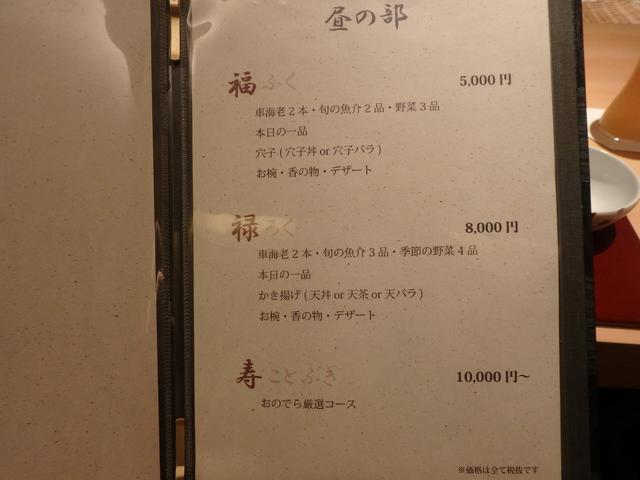 昼の部
福 ふく 5,000円
車海老2本・旬の魚介2品・野菜3品
本日の一品
穴子(穴子丼or穴子バラ)
お椀・香の物・デザート
禄 ろく 8,000円
車海老2本・旬の魚介3品・季節の野菜4品
本日の一品
かき揚げ(天丼or天茶or天バラ)
お椀・香の物・デザート
寿 ことぶき 10,000円～
おのでら厳選コース
※価格は全て税抜です